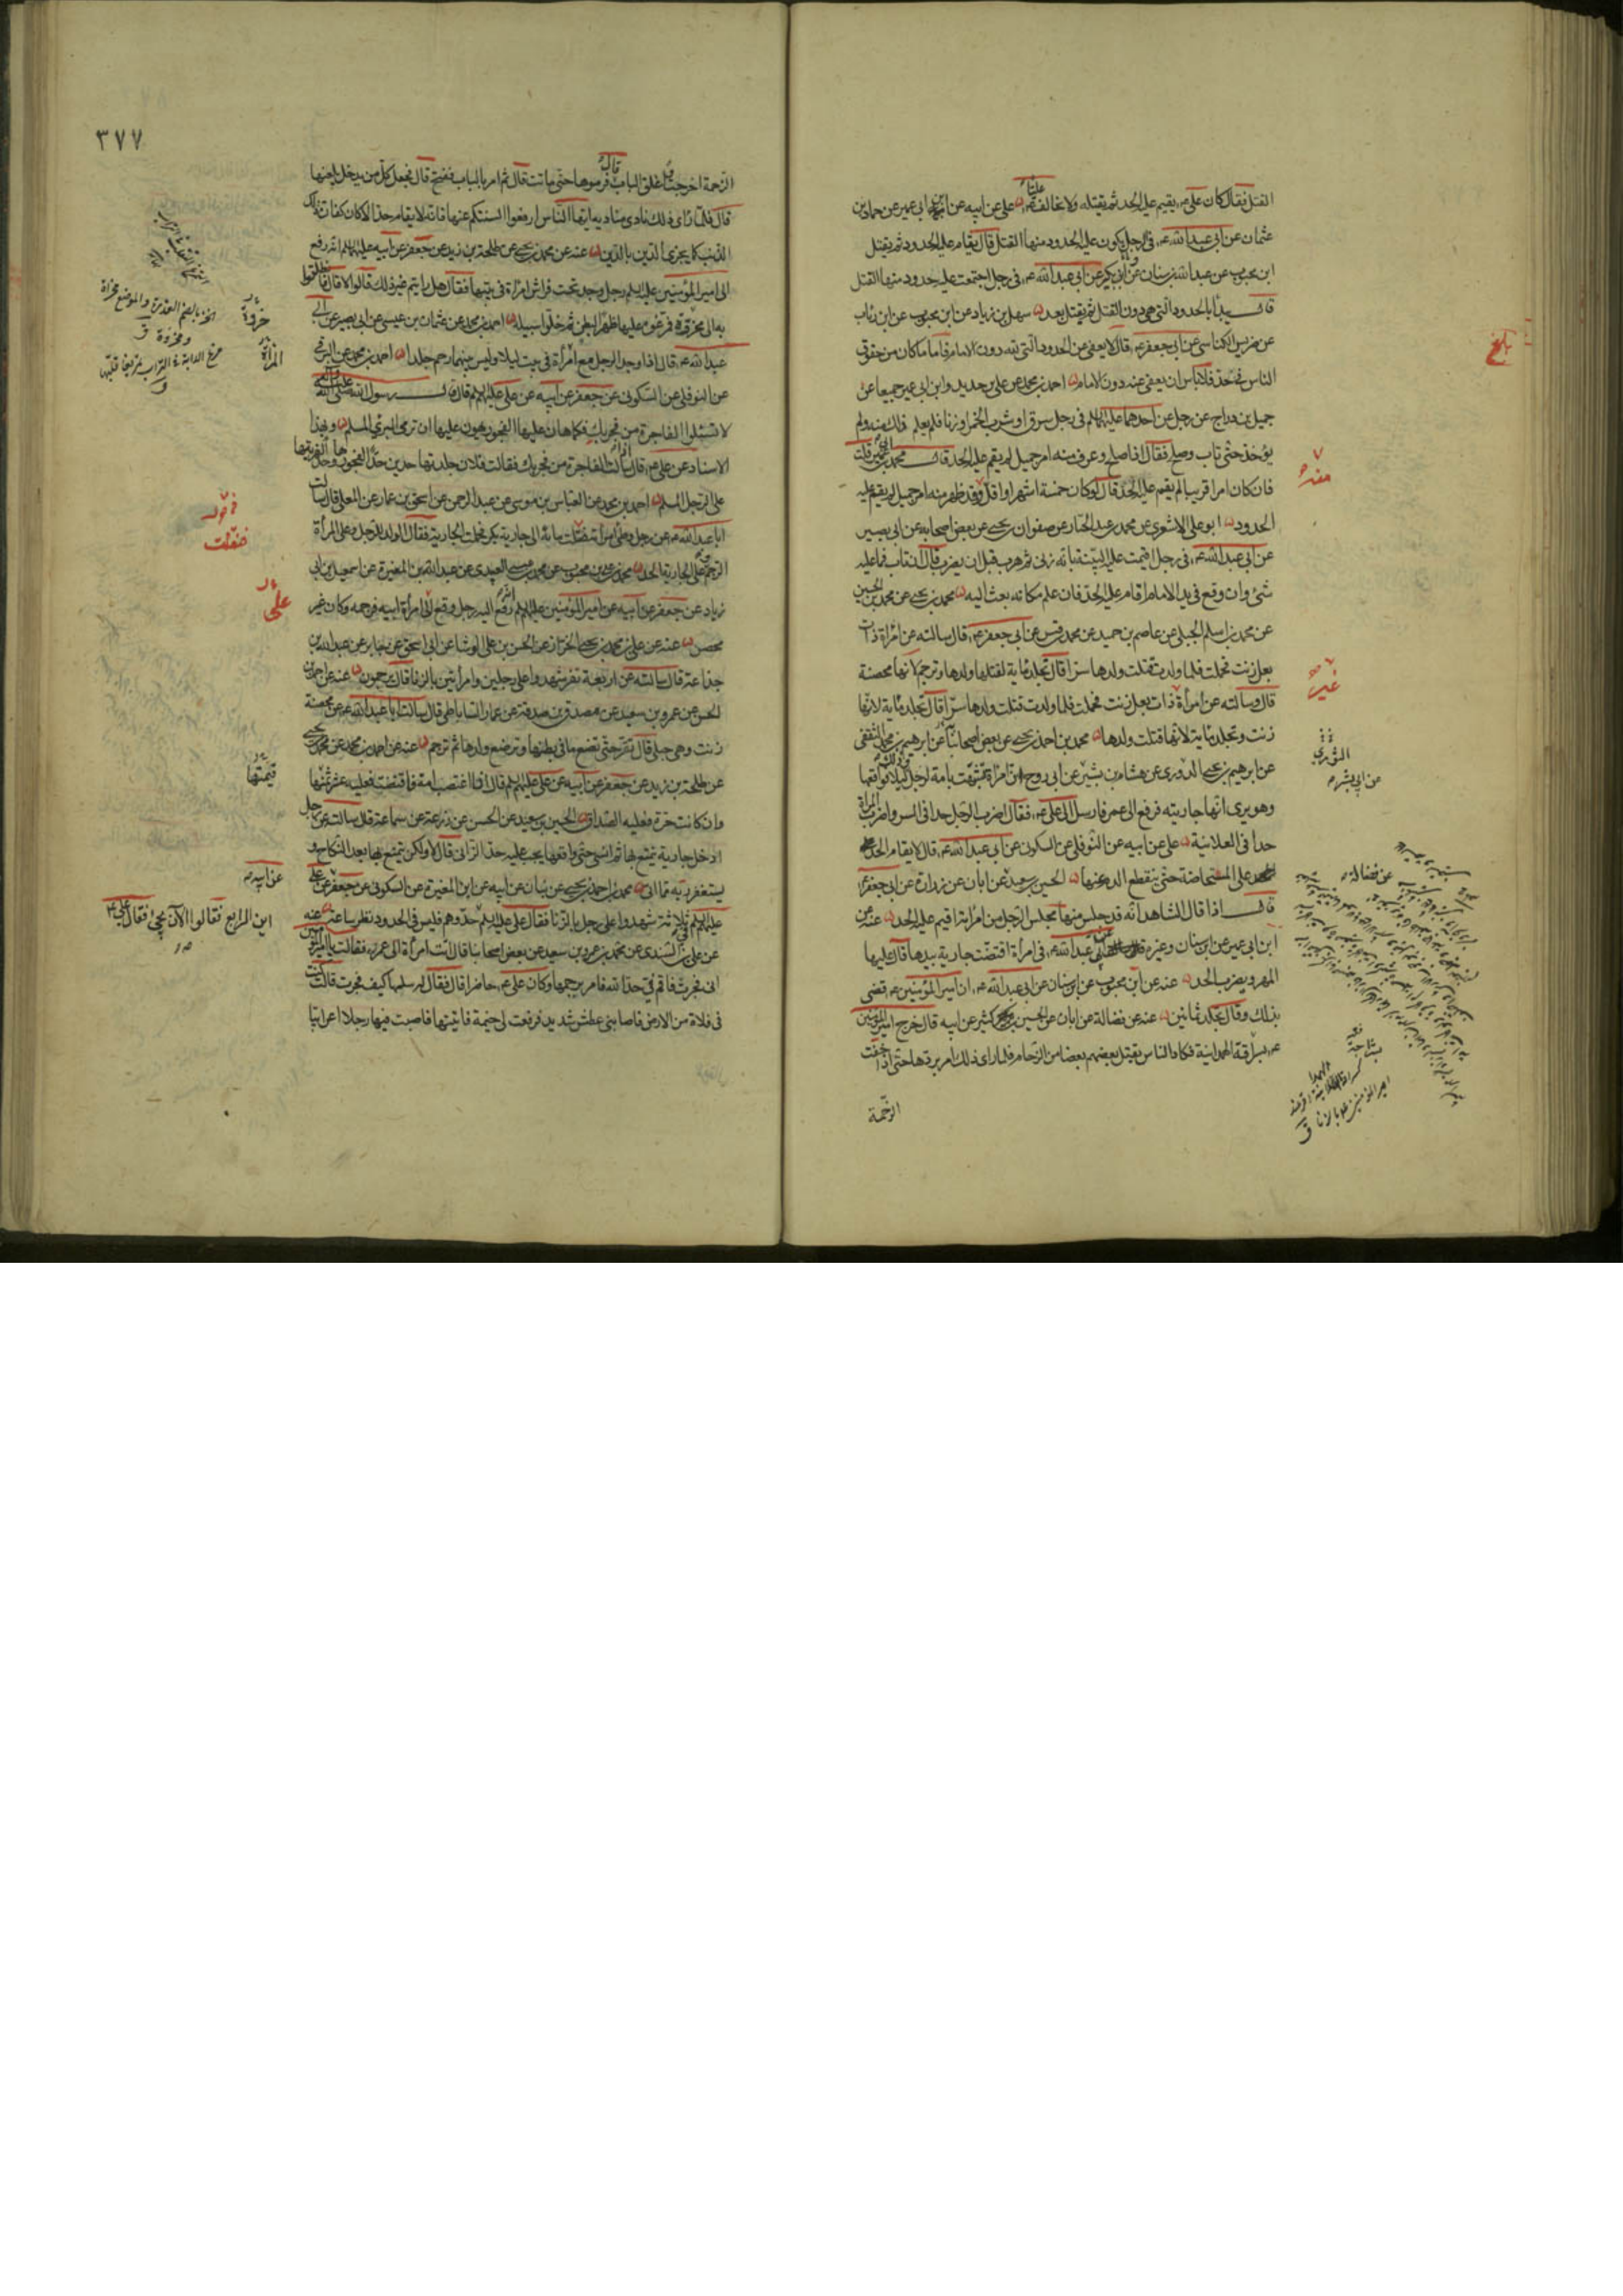 القتل فقال كان علي ع يقيم عليه الحد ثم يقتله ولا نخالف عليا ع علي عن ابيه عن ابن ابي عمير عن حماد بن
عثمان عن ابي عبد الله ع في الرجل يكون عليه الحدود منها القتل قال يقام عليه الحدود ثم يقتل
ابن محبوب عن عبد الله بن سنان وابن بكير عن ابي عبد الله ع في رجل اجتمعت عليه حدود منها القتل
قال يبدأ بالحدود التي هي دون القتل ثم يقتل بعد سهل بن زياد عن ابن محبوب عن ابن رئاب
عن ضريس الكناسي عن ابي جعفر ع قال لا يعفى عن الحدود التي لله دون الامام فاما ما كان من حقوق
الناس في حد فلا بأس ان يعفى عنه دون الامام احمد بن محمد عن علي بن حديد وابن ابي عمير جميعا عن
جميل بن دراج عن رجل عن احدهما عليهما السلم في رجل سرق او شرب الخمر او زنا فلم يعلم ذلك منه ولم
يؤخذ حتى تاب وصلح فقال اذا صلح وعرف منه امر جميل لم يقم عليه الحد قال محمد بن ابي عمير قلت
فان كان امرا قريبا لم يقم عليه الحد قال لو كان خمسة اشهر او اقل وقد ظهر منه امر جميل لم يقم عليه
الحدود ابو علي الاشعري عن محمد بن عبد الجبار عن صفوان بن يحيى عن بعض اصحابه عن ابي بصير
عن ابي عبد الله ع في رجل اقيمت عليه البينة بانه زنى ثم هرب قبل ان يضرب قال ان تاب فما عليه
شئ وان وقع في يد الامام اقام عليه الحد فان علم مكانه بعث اليه محمد بن يحيى عن محمد بن الحسين
عن محمد بن اسلم الجبلي عن عاصم بن حميد عن محمد بن قيس عن ابي جعفر ع قال سالته عن امراة ذات
بعل زنت فحملت فلما ولدت قتلت ولدها سرا قال تجلد مائة لقتلها ولدها وترجم لانها محصنة
قال وسالته عن امرأة ذات بعل زنت فحملت فلما ولدت قتلت ولدها سرا قال تجلد مائة لانها
زنت وتجلد مائة لانها قتلت ولدها محمد بن احمد بن يحيى عن بعض اصحابنا عن ابرهيم بن محمد الثقفي
عن ابرهيم بن يحيى الدوري عن هشام بن بشير عن ابي روح ان امراة تشبهت بامة لرجل وذلك ليلا فواقعها
وهو يرى انها جاريته فرفع الى عمر فارسل الى علي ع فقال اضرب الرجل حدا في السر واضرب المراة
حدا في العلانية علي عن ابيه عن النوفلي عن السكوني عن ابي عبد الله ع قال لا يقام الحد
على المستحاضة حتى ينقطع الدم عنها الحسين بن سعيد عن ابان عن زرارة عن ابي جعفر ع
قال اذا قال الشاهد انه قد جلس منها مجلس الرجل من امراته اقيم عليه الحد عنه عن
ابن ابي عمير عن ابن سنان وغيره عن ابي عبد الله ع في امرأة اقتضت جارية بيدها قال عليها
المهر ويضرب الحد عنه عن ابن محبوب عن ابن سنان عن ابي عبد الله ع ان امير المؤمنين ع قضى
بذلك وقال تجلد ثمانين عنه عن فضالة عن ابان عن الحسين بن كثير عن ابيه قال خرج امير المؤمنين
ع بسراقة الهمدانية فكاد الناس يقتل بعضهم بعضا من الزحام فلما راى ذلك امر بردها حتى اذا خفت
الزحمة
بلغ
منه
غير
الثوري
عن ابي بشر
عن فضالة
٣٧٧
الزحمة اخرجت واغلق الباب قال فرموها حتى ماتت قال ثم امر بالباب ففتح قال فجعل كل من يدخل يلعنها
قال فلما رأى ذلك نادى مناديه ايها الناس ارفعوا السنتكم عنها فانه لا يقام حد الا كان كفارة ذلك
الذنب كما يجزى الدين بالدين عنه عن محمد بن يحيى عن طلحة بن زيد عن جعفر عن ابيه عليهما السلم انه رفع
الى امير المؤمنين عليه السلم رجل وجد تحت فراش امراة في بيتها فقال هل رايتم غير ذلك قالوا لا قال فانطلقوا
به الى مخروة فمرغوه عليها ظهرا لبطن ثم خلوا سبيله احمد بن محمد عن عثمان بن عيسى عن ابي بصير عن ابي
عبد الله ع قال اذا وجد الرجل مع امرأة في بيت ليلا وليس بينهما رحم جلدا احمد بن محمد عن البرقي
عن النوفلي عن السكوني عن جعفر عن ابيه عن علي عليهم السلم قال قال رسول الله صلى الله عليه وآله
لا تسئلوا الفاجرة من فجر بك فكما هان عليها الفجور يهون عليها ان ترمي البرئ المسلم وبهذا
الاسناد عن علي ع قال اذا سالت الفاجرة من فجر بك فقالت فلان جلدتها حدين حدا لفجورها وحدا لفريتها
على الرجل المسلم احمد بن محمد عن العباس بن موسى عن عبد الرحمن عن اسحق بن عمار عن المعلى قال سالت
ابا عبد الله ع عن رجل وطئ امرأته فنقلت ماءه الى جارية بكر فحملت الجارية فقال الولد للرجل وعلى المرأة
الرجم وعلى الجارية الحد محمد بن علي بن محبوب عن محمد بن عيسى العبيدي عن عبد الله بن المغيرة عن اسمعيل بن ابي
زياد عن جعفر عن ابيه عن امير المؤمنين عليهم السلم انه رفع اليه رجل وقع على امرأة ابيه فرجمه وكان غير
محصن عنه عن علي بن محمد بن يحيى الخزاز عن الحسن بن علي الوشا عن ابي اسحق عن جابر عن عبد الله بن
جذاعة قال سالته عن اربعة نفر شهدوا على رجلين وامرأتين بالزنا قال يرجمون عنه عن احمد بن
الحسن عن عمرو بن سعيد عن مصدق بن صدقة عن عمار الساباطي قال سالت ابا عبد الله ع عن محصنة
زنت وهي حبلى قال تقر حتى تضع ما في بطنها وترضع ولدها ثم ترجم عنه عن احمد بن محمد عن محمد بن يحيى
عن طلحة بن زيد عن جعفر عن ابيه عن علي عليهم السلم قال اذا اغتصب امة فاقتضت فعليه عشر ثمنها
وان كانت حرة فعليه الصداق الحسين بن سعيد عن الحسن عن زرعة عن سماعة قال سالته عن رجل
ادخل جارية يتمتع بها ثم انسي حتى واقعها يجب عليه حد الزاني قال لا ولكن يتمتع بها بعد النكاح و
يستغفر ربه مما اتى محمد بن احمد بن يحيى عن بنان عن ابيه عن ابن المغيرة عن السكوني عن جعفر عن علي
عليهم السلم في ثلاثة شهدوا على رجل بالزنا فقال علي عليه السلم حدوهم فليس في الحدود نظر ساعة عنه
عن علي بن السندي عن محمد بن عمرو بن سعيد عن بعض اصحابنا قال اتت امرأة الى عمر فقالت يا امير المؤمنين
اني فجرت فاقم في حد الله فامر برجمها وكان علي ع حاضرا قال فقال له سلها كيف فجرت قالت كنت
في فلاة من الارض فاصابني عطش شديد فرفعت لي خيمة فاتيتها فاصبت فيها رجلا اعرابيا
خروة
المرأة
فنقلت
على
قيمتها
عن ابيه
اين الرابع فقالوا الان يجئ فقال علي ع